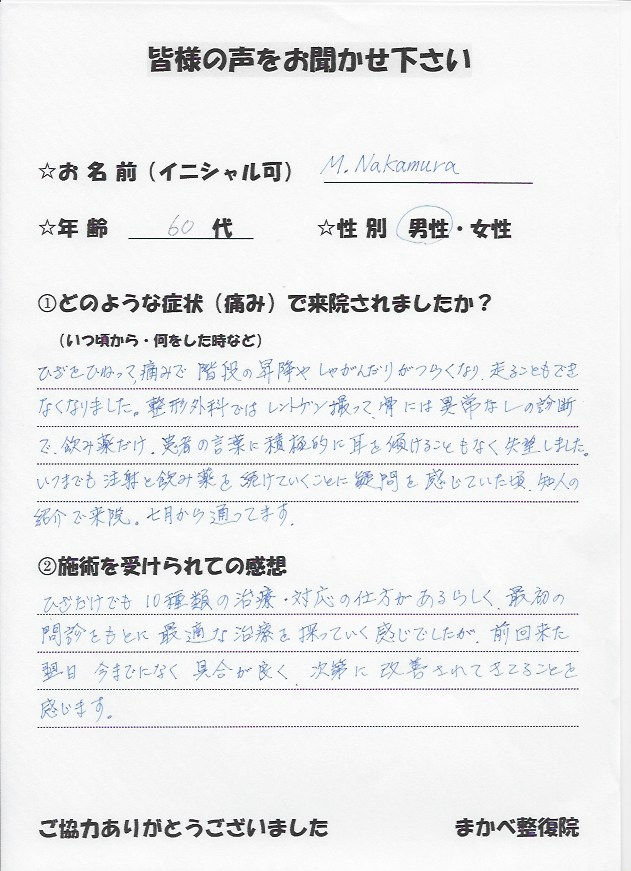 皆様の声をお聞かせ下さい
☆お名前（イニシャル可） M. Nakamura
☆年齢 60 代 ☆性別 男性・女性
①どのような症状（痛み）で来院されましたか？
（いつ頃から・何をした時など）
ひざをひねって、痛みで階段の昇降やしゃがんだりがつらくなり、走ることもでき
なくなりました。整形外科ではレントゲン撮って、骨には異常なしの診断
で、飲み薬だけ、患者の言葉に積極的に耳を傾けることもなく失望しました。
いつまでも注射と飲み薬を続けていくことに疑問を感じていた頃、知人の
紹介で来院。七月から通ってます。
②施術を受けられての感想
ひざだけでも10種類の治療・対応の仕方があるらしく、最初の
問診をもとに最適な治療を探っていく感じでしたが、前回来た
翌日今までになく具合が良く、次第に改善されてきてることを
感じます。
ご協力ありがとうございました まかべ整復院